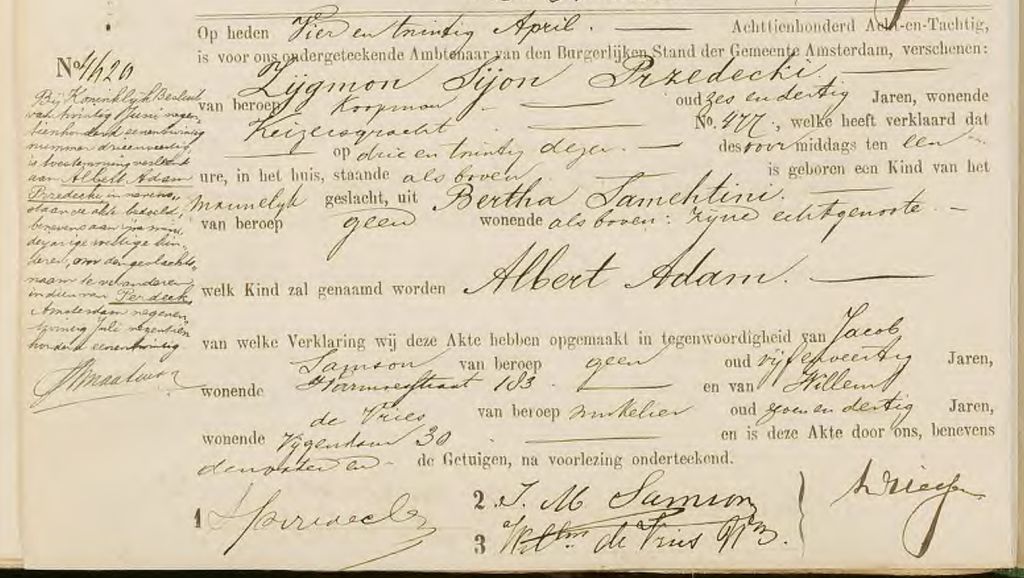 Op heden Vier en twintig April. Achttienhonderd Acht-en-Tachtig,
is voor ons ondergeteekende Ambtenaar van den Burgerlijken Stand der Gemeente Amsterdam, verschenen:
Zijgmon Sijon Przedecki.
van beroep Koopman oud zes en dertig Jaren, wonende
Keizersgracht No. 477, welke heeft verklaard dat
op drie en twintig dezer. des voor middags ten een
ure, in het huis, staande als boven is geboren een Kind van het
mannelyk geslacht, uit Bertha Samchtini.
van beroep geen wonende als boven: zyne echtgenoote.
welk Kind zal genaamd worden Albert Adam.
van welke Verklaring wij deze Akte hebben opgemaakt in tegenwoordigheid van Jacob
Samson van beroep geen oud vijf en veertig Jaren,
wonende Warmoesstraat 183 en van Willem
de Vries van beroep winkelier oud zeven en dertig Jaren,
wonende Vijgendam 30 en is deze Akte door ons, benevens
den vader en de Getuigen, na voorlezing onderteekend.
1
2 J. M. Samson
3 Willm de Vries Wzn.
No. 4620
Bij Koninklijk Besluit
van twintig Juni negen-
tienhonderd eenentwintig
nummer drieenveertig,
is toestemming verleend
aan Albert Adam
Przedecki in neven-
staande akte bedoeld,
benevens aan zijne min-
derjarige wettige kin-
deren, om den geslachts-
naam te veranderen
in dien van Perdeck
Amsterdam negenen-
twintig Juli negentien
honderd eenentwintig.